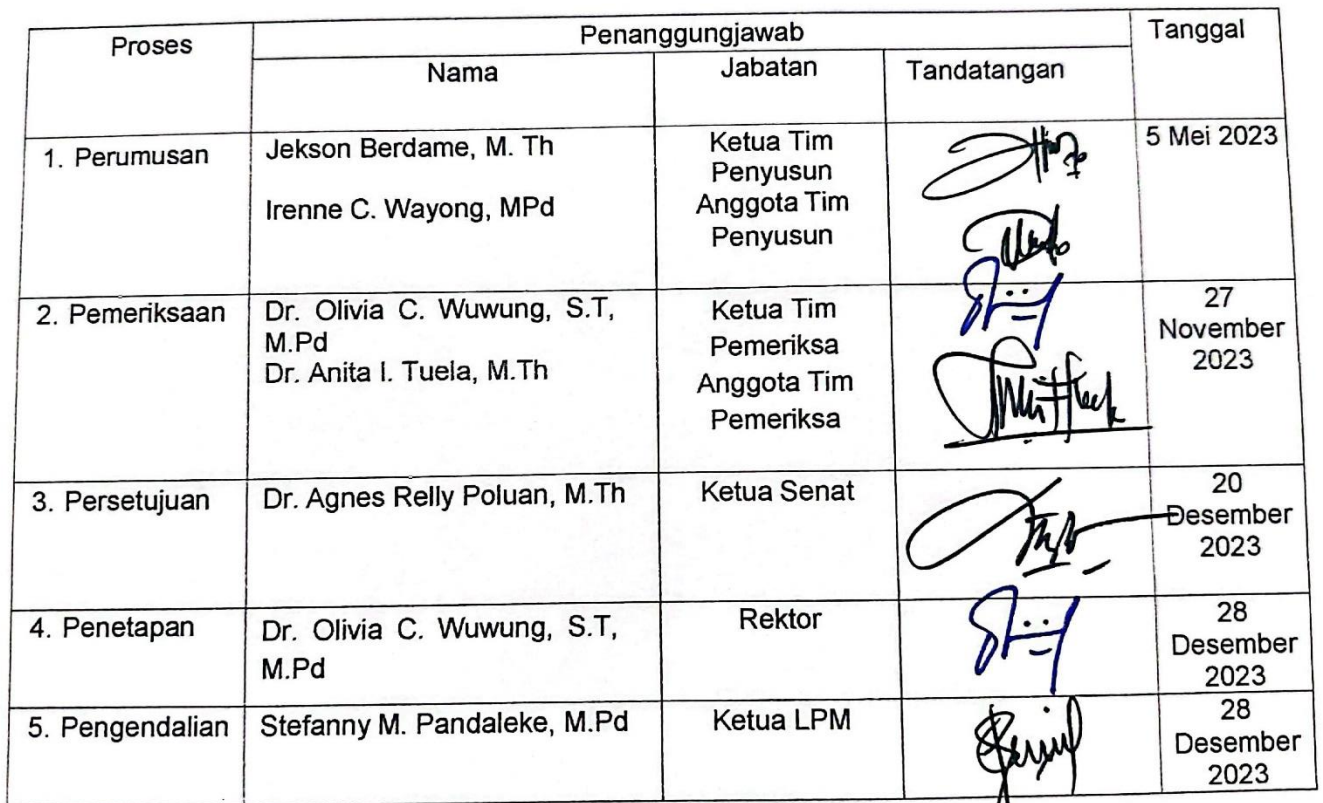 Proses
Penanggungjawab
Tanggal
Nama
Jabatan
Tandatangan
1. Perumusan
Jekson Berdame, M. Th
Irenne C. Wayong, MPd
Ketua Tim
Penyusun
Anggota Tim
Penyusun
5 Mei 2023
2. Pemeriksaan
Dr. Olivia C. Wuwung, S.T,
M.Pd
Dr. Anita I. Tuela, M.Th
Ketua Tim
Pemeriksa
Anggota Tim
Pemeriksa
27
November
2023
3. Persetujuan
Dr. Agnes Relly Poluan, M.Th
Ketua Senat
20
Desember
2023
4. Penetapan
Dr. Olivia C. Wuwung, S.T,
M.Pd
Rektor
28
Desember
2023
5. Pengendalian
Stefanny M. Pandaleke, M.Pd
Ketua LPM
28
Desember
2023